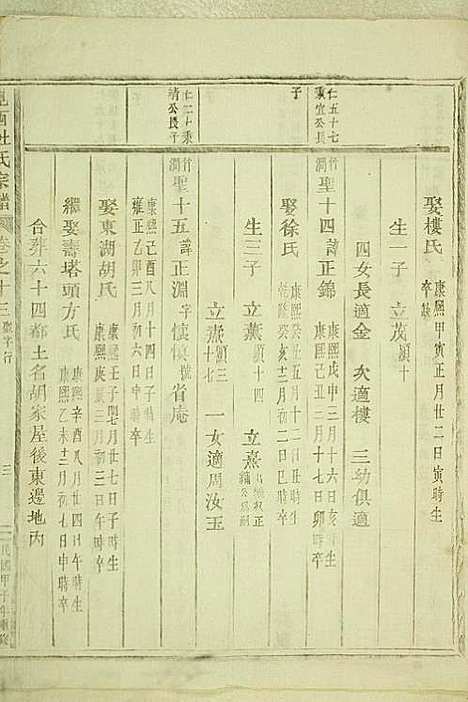 娶樓氏 康熙甲寅正月廿二日寅時生 卒缺
生一子 立茂 頴十
四女長適金 次適樓 三幼俱適
仁五十七 秉宜公長子
聖十四 諱正錦 康熙戊申三月十六日亥時生 康熙 三月十七日卯時卒
娶徐氏 康熙 五月十二日丑時生 乾隆癸亥十二月初二日巳時卒
生三子 立薰 頴十四 立熹
立燕 頴三十七 一女適周汝玉
秉清公長子
聖十五 諱正淵 字 號省庵 康熙己酉八月十四日子時生 雍正乙卯三月初六日申時卒
娶東湖胡氏 康熙壬子閏七月廿七日子時生 康熙庚 三月廿七日 時卒
繼娶壽塔頭方氏 康熙辛酉八月廿四日午時生 康熙乙未十二月初七日申時卒
合葬六十四都土名胡家屋後東邊地丙
杜氏宗譜 卷之十三 聖字行 三 民國甲子年重修